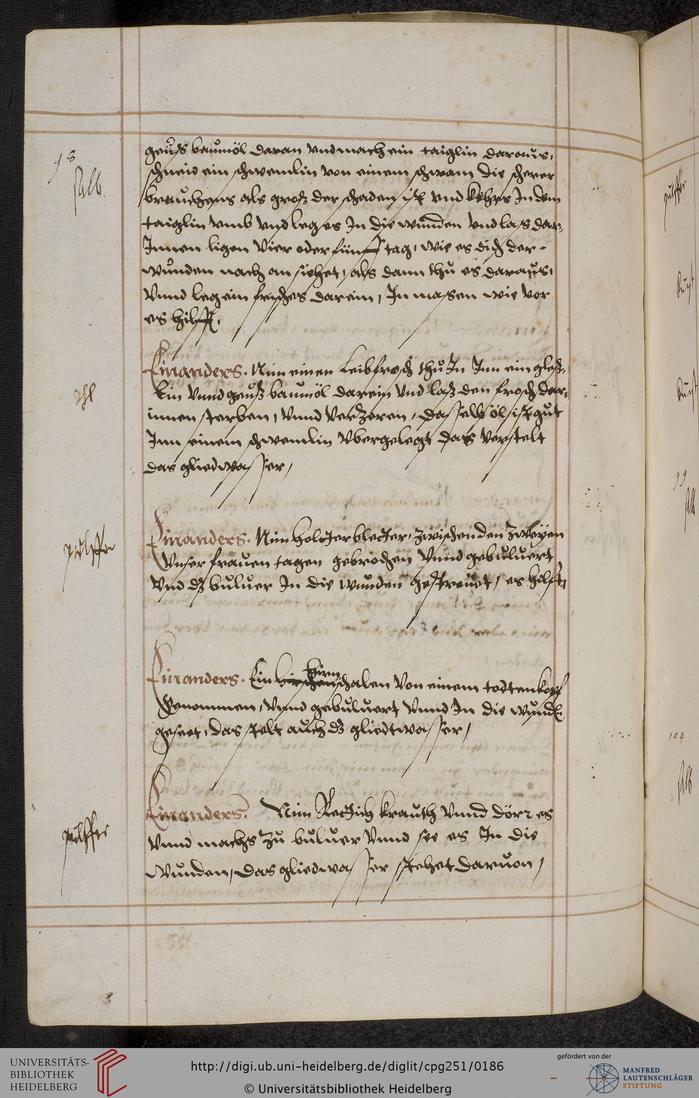 98
Salb.
geuß baumöl daran vnd mach ein taiglin daraus,
schneid ein schwemlin von einem schwam die scherer
brauchens als groß der schaden ist vnd kehrs In dem
taiglin vmb vnd leg es In die wunden vnd las dar-
Innen ligen vier oder fünff tag, wie es dich der
wunden nach an siehet, als dann thu es daraus,
vnnd leg ein frisches darein, In masen wie vor
es hilfft,
Einanders. Nim einen Leibfrosch thu In Inn ein gleß-
öhl
lin vnnd geuß baumöl darein vnd laß den frosch dar-
innen sterben, vnnd verzeren, dasselb öl ist gut
Inn einem schwemlin vbergelegt das verstelt
das gliedwasser,
pulffer
Einanders. Nim holder bletter, zwischen den zweyen
vnser frauen tagen gebrochen vnnd gebuluert
vnd dz buluer In die wunden gestreuet, es hilfft,
Einanders. Ein hirnschalen von einem todtenkopf
Genommen, vnnd gebuluert vnnd In die wunde
geseet, das stelt auch dz gliedtwasser,
pulffer
Einanders. Nim Rettich krauth vnnd dörr es
vnnd machs zu buluer vnnd see es In die
wunden, das gliedwasser stehet daruon,
99
100
Salb
UNIVERSITÄTS-
BIBLIOTHEK
HEIDELBERG
http://digi.ub.uni-heidelberg.de/diglit/cpg251/0186
© Universitätsbibliothek Heidelberg
gefördert von der
MANFRED
LAUTENSCHLÄGER
STIFTUNG